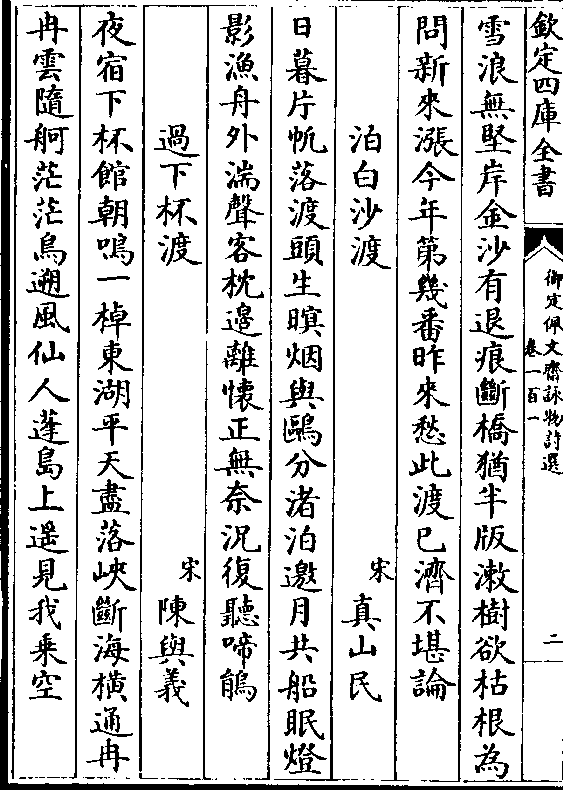 欽定四庫全書
御定佩文齋詠物詩選
卷一百一
二
雪浪無堅岸金沙有退痕斷橋猶半版漱樹欲枯根為
問新來漲今年第幾番昨來愁此渡已濟不堪論
泊白沙渡
宋
真山民
日暮片帆落渡頭生暝烟與鷗分渚泊邀月共船眠燈
影漁舟外湍聲客枕邊離懷正無奈況復聽啼鵑
過下杯渡
宋
陳與義
夜宿下杯館朝鳴一棹東湖平天盡落峽斷海橫通冉
冉雲隨舸茫茫鳥遡風仙人蓬島上遥見我乘空